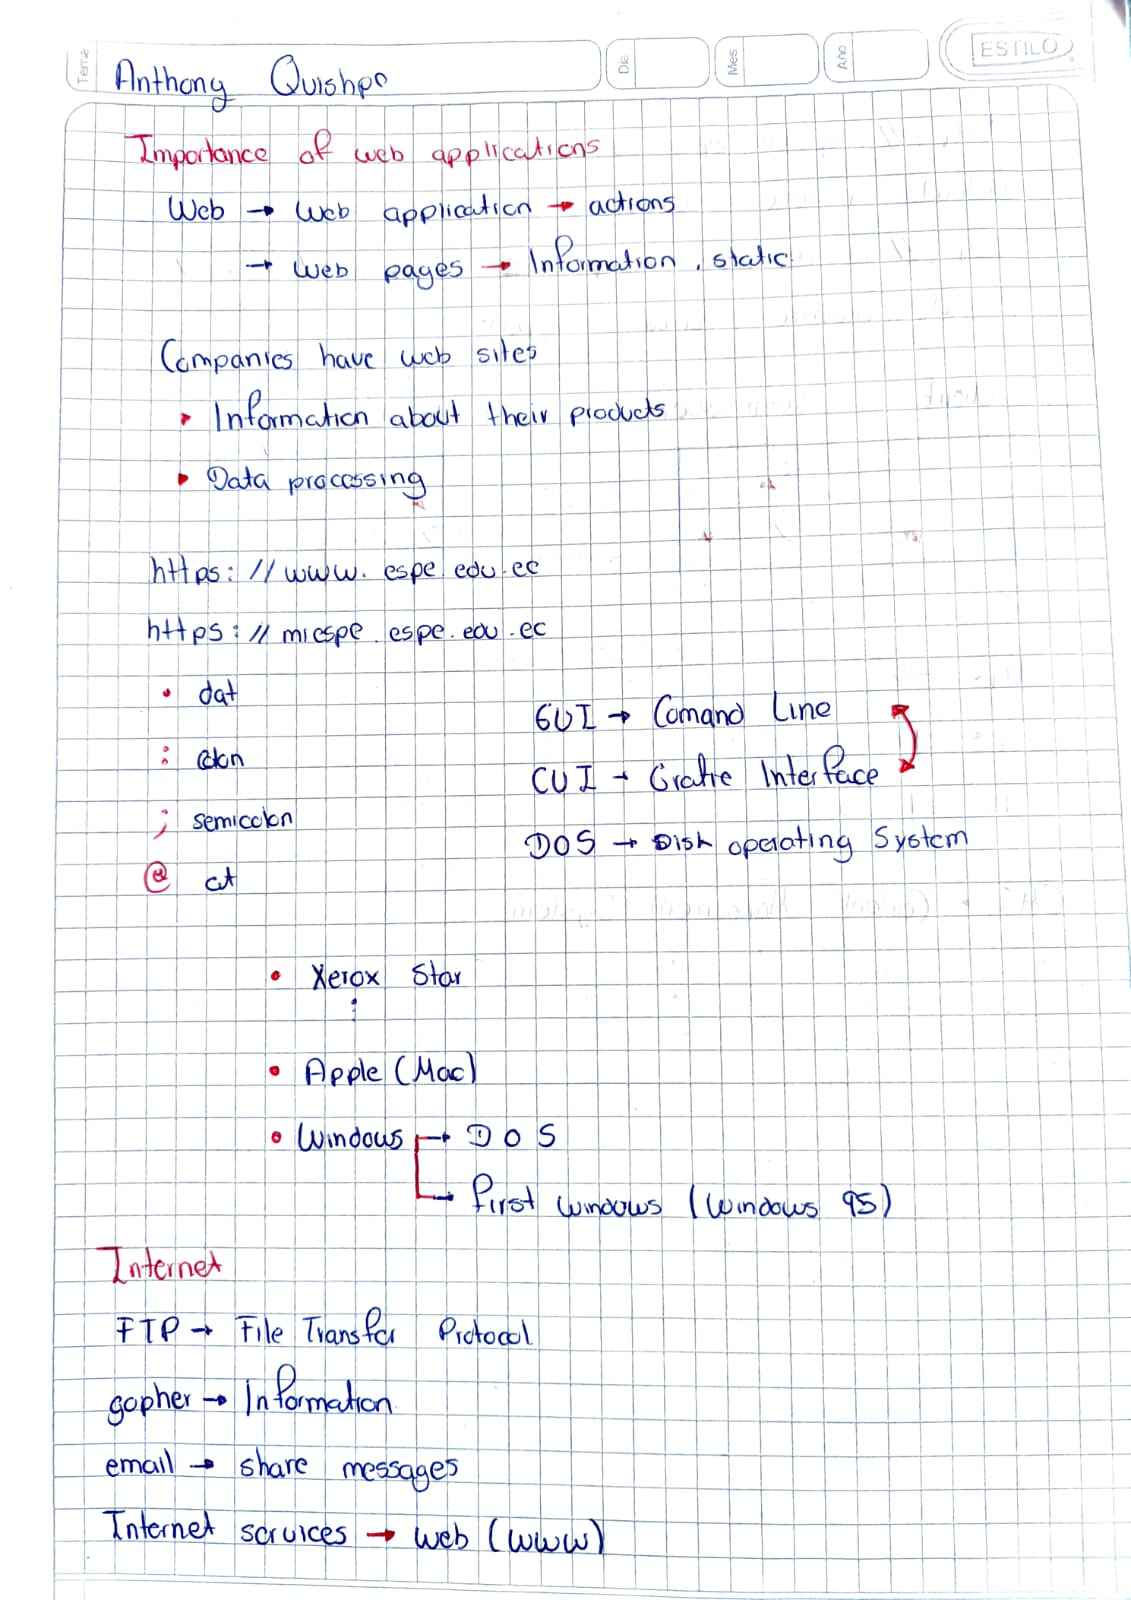 Tema
Anthony Quishpe
Día
Mes
Año
ESTILO
Importance of web applications
Web → Web application → actions
→ Web pages → Information, static
Companies have web sites
Information about their products
Data processing
https://www.espe.edu.ec
https://miespe.espe.edu.ec
• dat
: colon
; semicolon
@ at
GUI → Comand Line
CUI → Grafie Interface
DOS → Disk operating System
• Xerox Star
⋮
• Apple (Mac)
• Windows → DOS
→ first windows (Windows 95)
Internet
FTP → File Transfer Protocol
gopher → Information
email → share messages
Internet services → web (www)